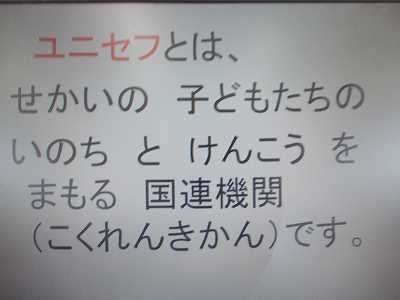 ユニセフとは、
せかいの 子どもたちの
いのち と けんこう を
まもる 国連機関
（こくれんきかん）です。